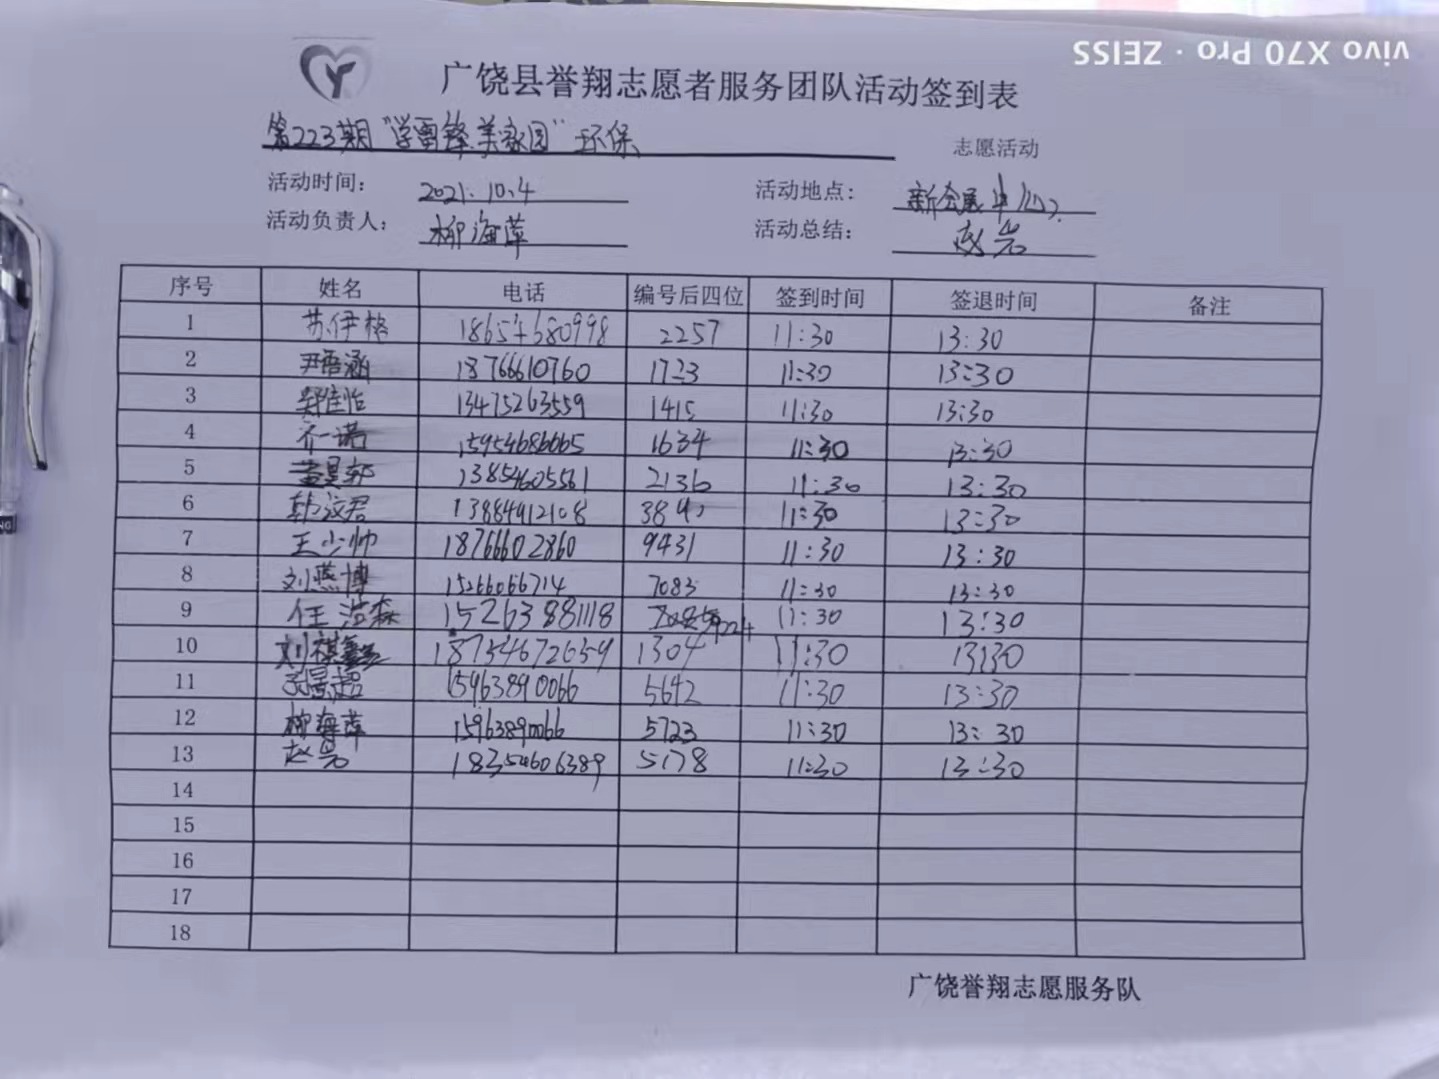 vivo X70 Pro · ZEISS
广饶县誉翔志愿者服务团队活动签到表
第223期"学雷锋美家园"环保 志愿活动
活动时间: 2021.10.4 活动地点: 新会展中心
活动负责人: 柳海萍 活动总结: 赵岩
序号 姓名 电话 编号后四位 签到时间 签退时间 备注
1 苏伊格 18654680998 2257 11:30 13:30
2 尹语涵 18766610760 1723 11:30 13:30
3 郑佳怡 13475263559 1415 11:30 13:30
4 齐一诺 15954686665 1634 11:30 13:30
5 董昊轩 13854605561 2136 11:30 13:30
6 韩汶君 13884912108 11:30 13:30
7 王少帅 18766602860 9431 11:30 13:30
8 刘燕博 15266066714 7083 11:30 13:30
9 任浩森 15263881118 11:30 13:30
10 刘祺 18754672659 1304 11:30 13:30
11 景超 15963890066 5642 11:30 13:30
12 柳海萍 15963890066 5723 11:30 13:30
13 赵岩 18354606389 5178 11:30 13:30
14
15
16
17
18
广饶誉翔志愿服务队